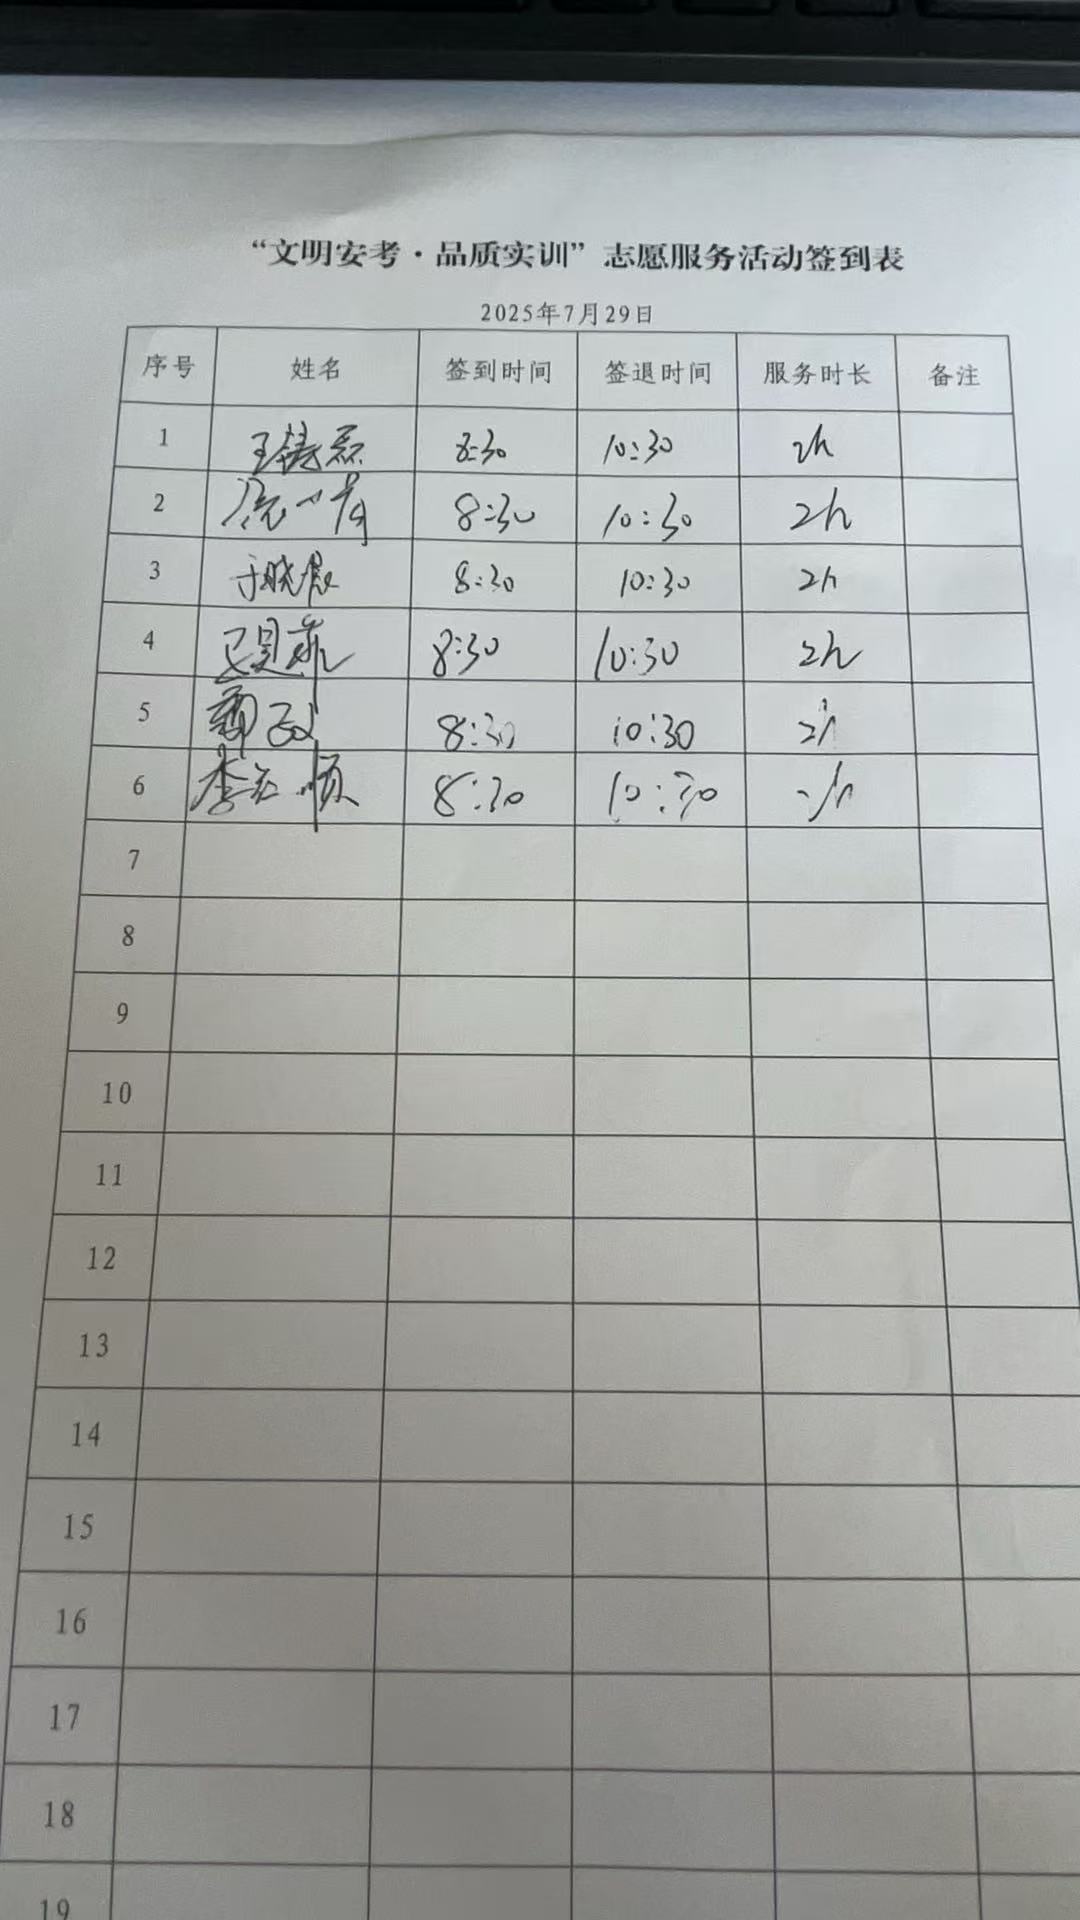 “文明安考·品质实训”志愿服务活动签到表
2025年7月29日
序号 姓名 签到时间 签退时间 服务时长 备注
1 8:30 10:30 2h
2 8:30 10:30 2h
3 于晓晨 8:30 10:30 2h
4 8:30 10:30 2h
5 8:30 10:30 2h
6 8:30 10:30
7
8
9
10
11
12
13
14
15
16
17
18
19